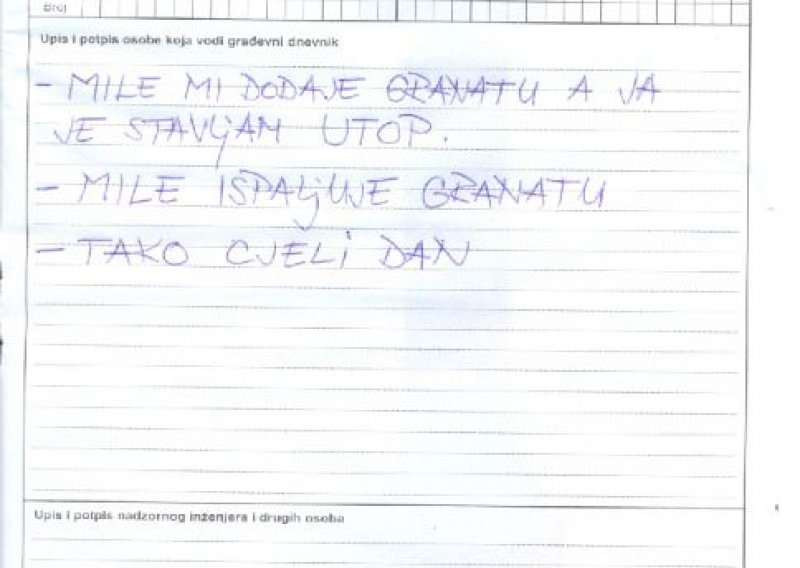 Broj
Upis i potpis osobe koja vodi građevni dnevnik
- MILE MI DODAJE GRANATU A JA
JE STAVLJAM UTOP.
- MILE ISPALJUJE GRANATU
- TAKO CJELI DAN
Upis i potpis nadzornog inženjera i drugih osoba